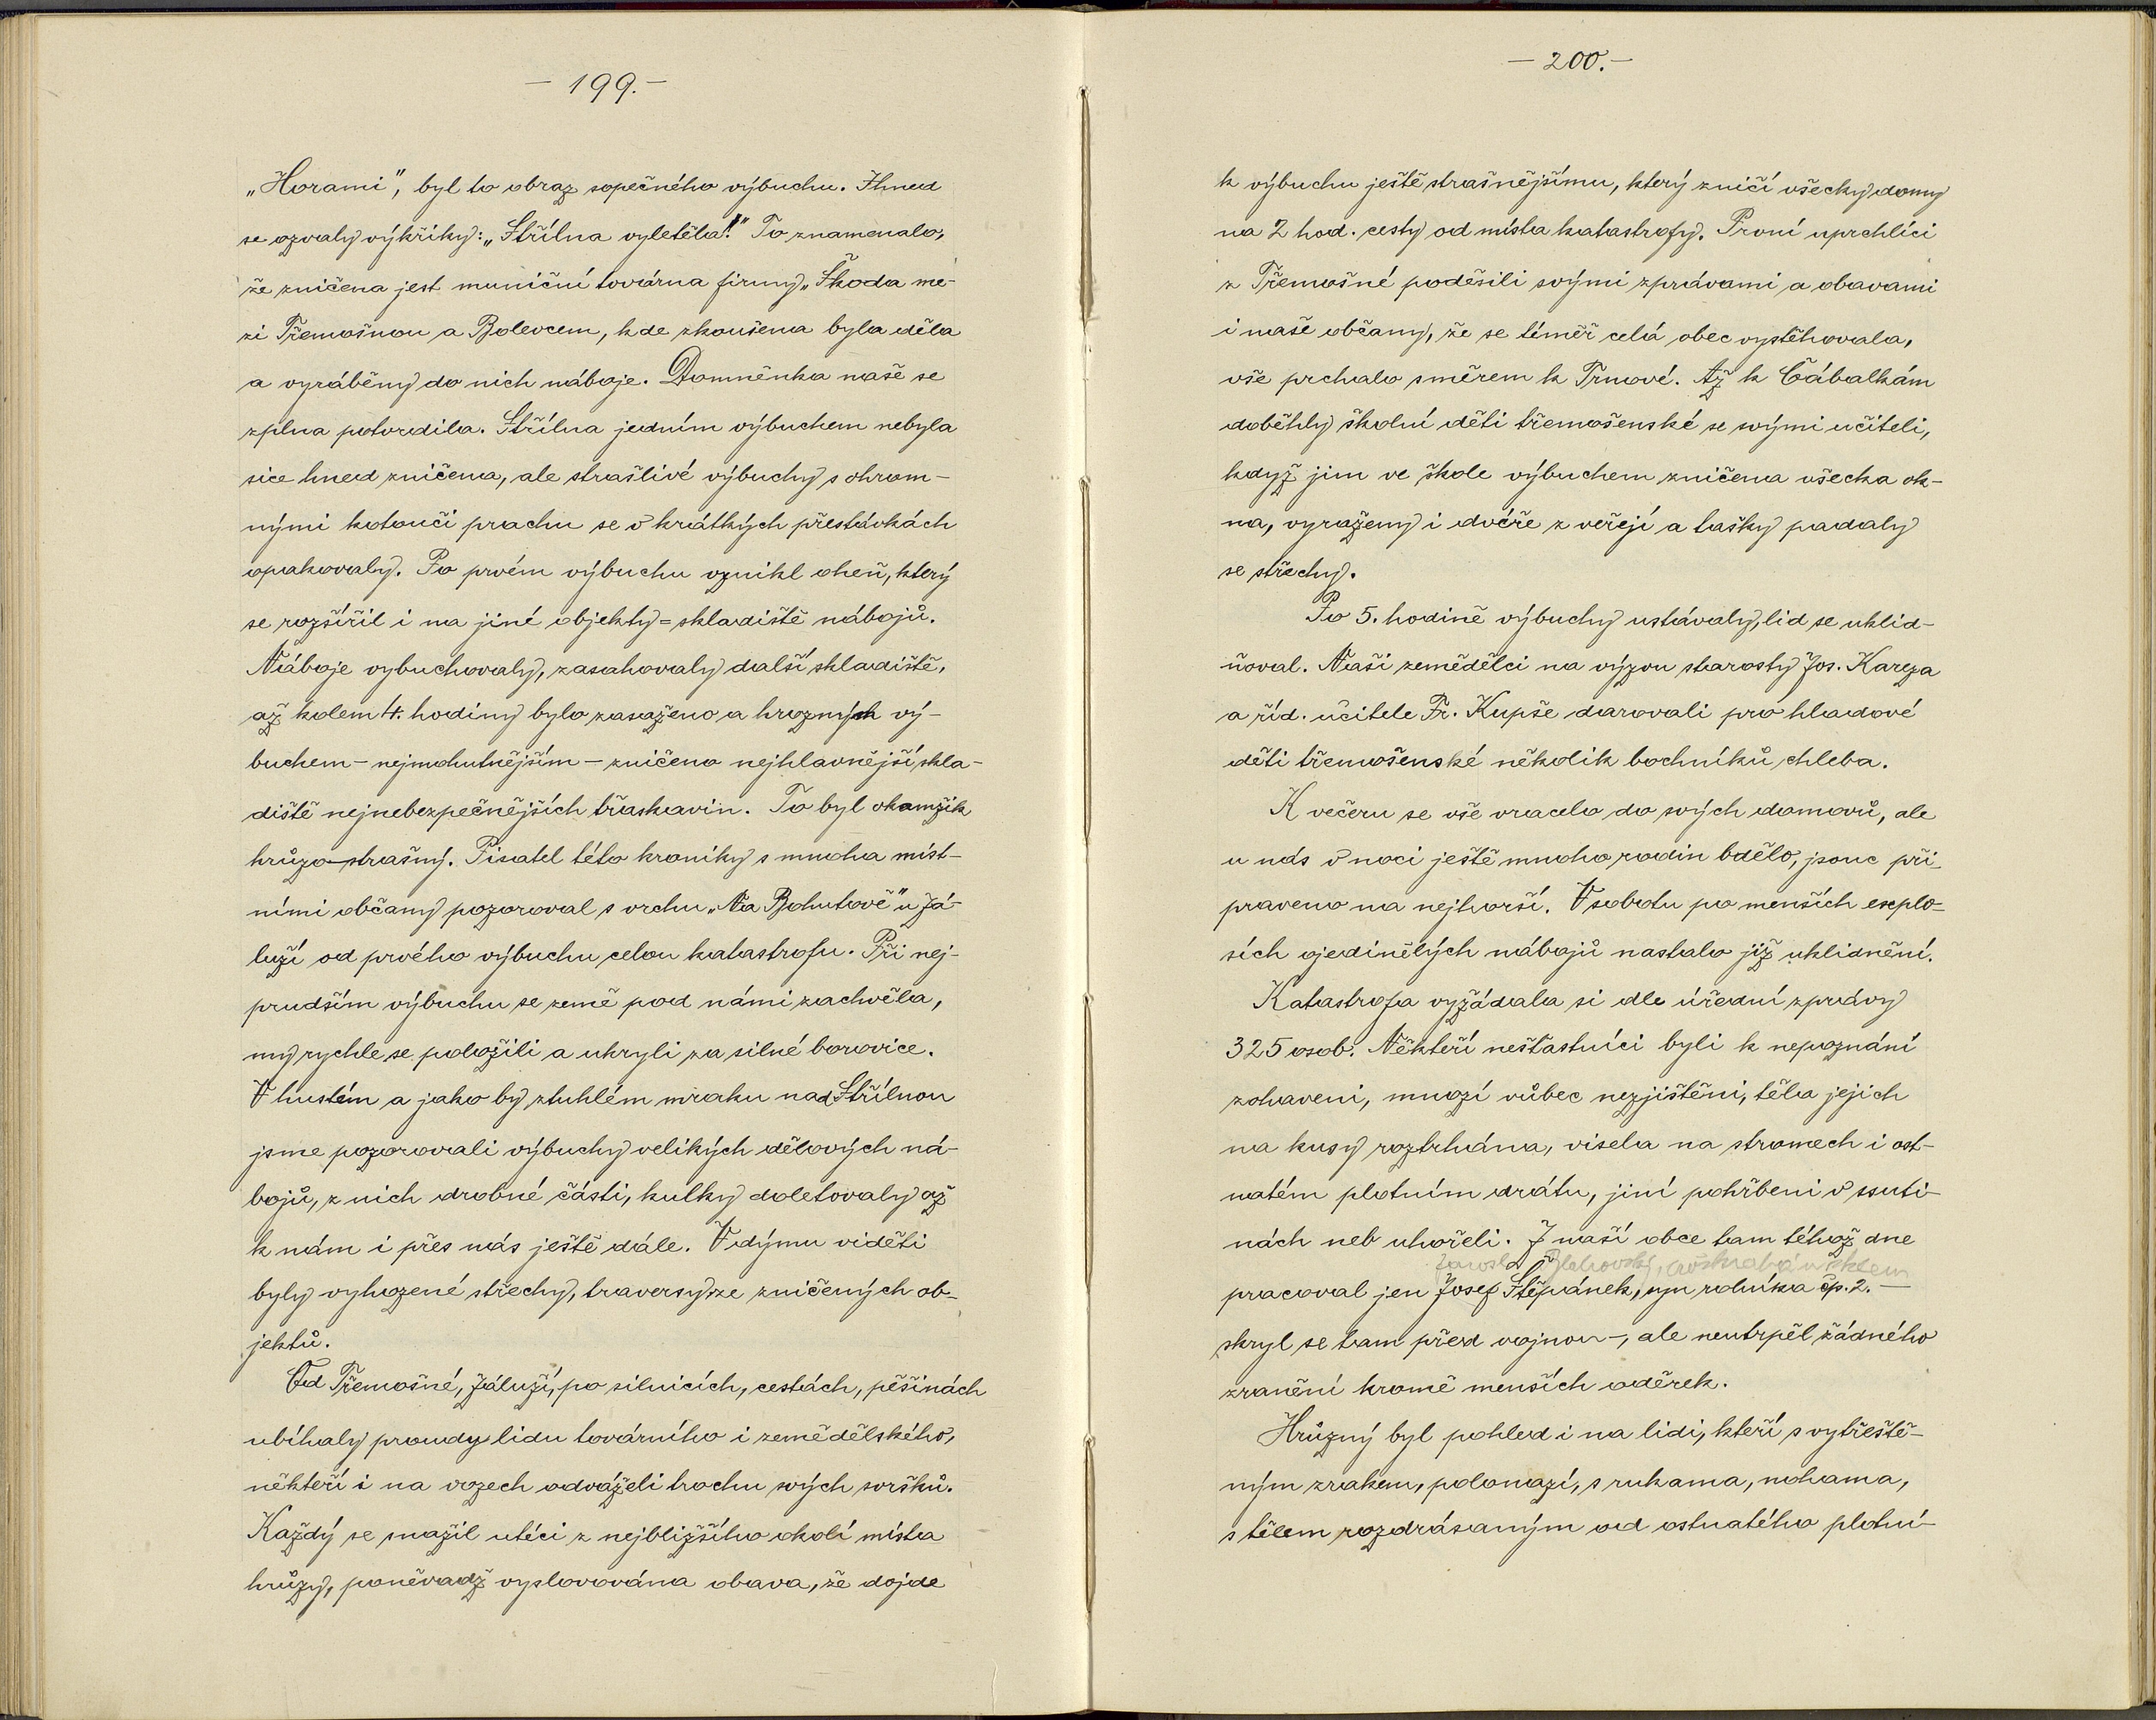 — 199. —
„Horami", byl to obraz sopečného výbuchu. Ihned
se ozvaly výkřiky: „Střílna vyletěla!" To znamenalo,
že zničena jest muniční továrna firmy „Škoda me-
zi Třemošnou a Bolevcem, kde zkoušena byla děla
a vyráběny do nich náboje. Domněnka naše se
zplna potvrdila. Střílna jedním výbuchem nebyla
sice hned zničena, ale strašlivé výbuchy s ohrom-
nými kotouči prachu se v krátkých přestávkách
opakovaly. Po prvém výbuchu vznikl oheň, který
se rozšířil i na jiné objekty = skladiště nábojů.
Náboje vybuchovaly, zasahovaly další skladiště,
až kolem 4. hodiny bylo zasaženo a hrozným vý-
buchem – nejmohutnějším – zničeno nejhlavnější skla-
diště nejnebezpečnějších třaskavin. To byl okamžik
hrůzo-strašný. Pisatel této kroniky s mnoha míst-
ními občany pozoroval s vrchu „Na Bohutově" u Zá-
luží od prvého výbuchu celou katastrofu. Při nej-
prudším výbuchu se země pod námi zachvěla,
my rychle se položili a ukryli za silné borovice.
V hustém a jako by ztuhlém mraku nad Střílnou
jsme pozorovali výbuchy velikých dělových ná-
bojů, z nich drobné části, kulky doletovaly až
k nám i přes nás ještě dále. V dýmu viděti
byly vyhozené střechy, traversy ze zničených ob-
jektů.
Od Třemošné, Záluží, po silnicích, cestách, pěšinách
ubíhaly proudy lidu továrního i zemědělského,
někteří i na vozech odváželi trochu svých svršků.
Každý se snažil utéci z nejbližšího okolí místa
hrůzy, poněvadž vyslovována obava, že dojde
— 200. —
k výbuchu ještě strašnějšímu, který zničí všecky domy
na 2 hod. cesty od místa katastrofy. První uprchlíci
z Třemošné poděsili svými zprávami a obavami
i naše občany, že se téměř celá obec vystěhovala,
vše prchalo směrem k Trnové. Až k Cábalkám
doběhly školní děti třemošenské se svými učiteli,
když jim ve škole výbuchem zničena všecka ok-
na, vyraženy i dvéře z veřejí a tašky padaly
se střechy.
Po 5. hodině výbuchy ustávaly, lid se uklid-
ňoval. Naši zemědělci na výzvu starosty Jos. Kareza
a říd. učitele Fr. Kupše darovali pro hladové
děti třemošenské několik bochníků chleba.
K večeru se vše vracelo do svých domovů, ale
u nás v noci ještě mnoho rodin bdělo, jsouc při-
praveno na nejhorší. V sobotu po menších explo-
sích ojedinělých nábojů nastalo již uklidnění.
Katastrofa vyžádala si dle úřední zprávy
325 osob. Někteří nešťastníci byli k nepoznání
zohaveni, mnozí vůbec nezjištěni, těla jejich
na kusy roztrhána, visela na stromech i ost-
natém plotním drátu, jiní pohřbeni v ssuti-
nách neb uhořeli. Z naší obce tam téhož dne
pracoval jen Josef Štěpánek, syn rolníka čp. 2. —
skryl se tam před vojnou –, ale neutrpěl žádného
zranění kromě menších oděrek.
Hrůzný byl pohled i na lidi, kteří s vytřeště-
ným zrakem, polonazí, s rukama, nohama,
s tělem rozdrásaným od ostnatého plotní-